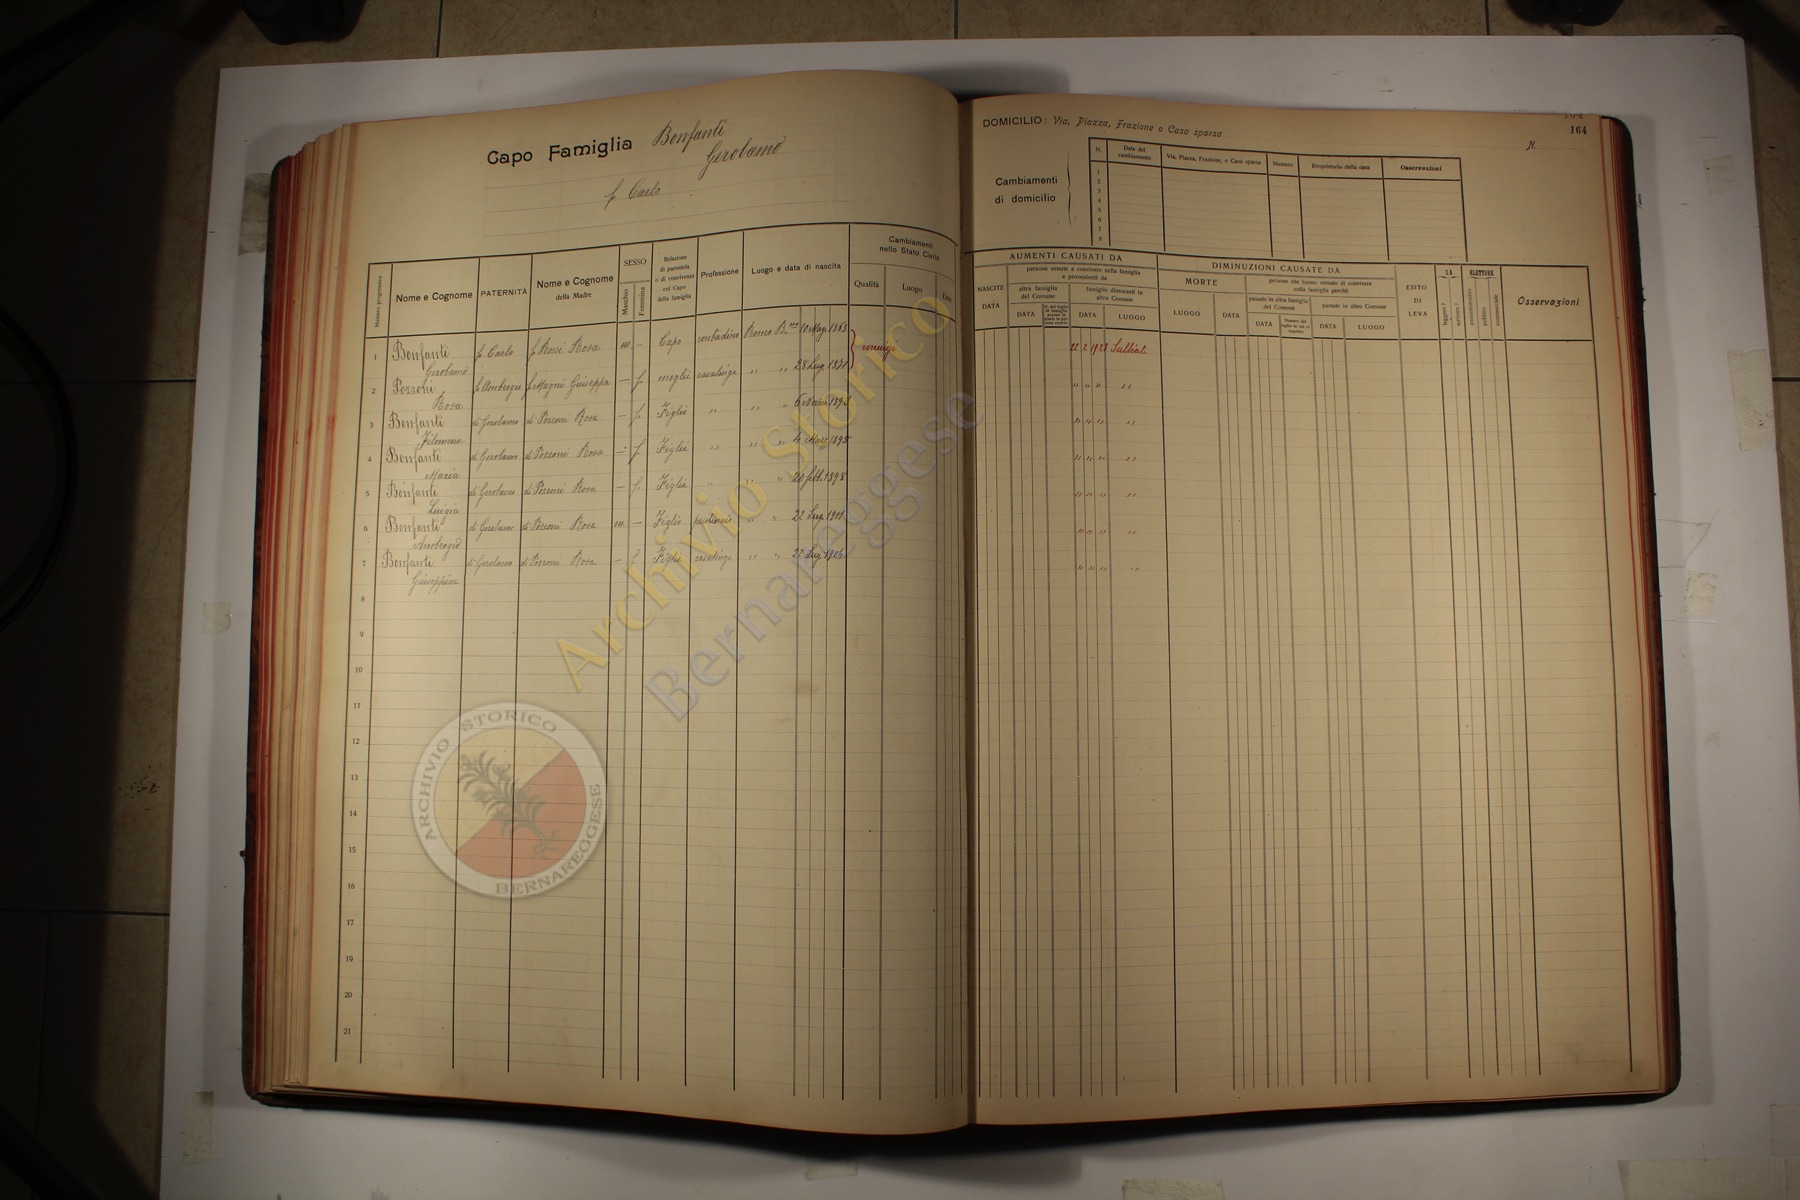 Capo Famiglia Bonfanti
Gerolamo
f. Carlo
Numero progressivo
Nome e Cognome
PATERNITÀ
Nome e Cognome
della Madre
SESSO
Maschio
Femmina
Relazione
di parentela
o di convivenza
col Capo
della famiglia
Professione
Luogo e data di nascita
Cambiamenti
nello Stato Civile
Qualità
Luogo
Data
1 Bonfanti f. Carlo f. Rossi Rosa m. — Capo contadino 10 Mag. 1863 coniugi
Gerolamo
2 Pozzoni f. Ambrogio f. Magni Giuseppa — f. moglie casalinga " " 28 Lug. 1871
Rosa
3 Bonfanti di Gerolamo di Pozzoni Rosa — f. Figlia " " " 1893
Filomena
4 Bonfanti di Gerolamo di Pozzoni Rosa — f. Figlia " " " 4 Mag. 1895
Maria
5 Bonfanti di Gerolamo di Pozzoni Rosa — f. Figlia " " " 20 febb. 1898
Luigia
6 Bonfanti di Gerolamo di Pozzoni Rosa m. — Figlio " " 22 Lug. 1901
Ambrogio
7 Bonfanti di Gerolamo di Pozzoni Rosa — f. Figlia casalinga " " 22 Lug. 1906
Giuseppina
8
9
10
11
12
13
14
15
16
17
18
19
20
21
164
DOMICILIO: Via, Piazza, Frazione o Casa sparsa
N.
Cambiamenti
di domicilio
N.
Data del
cambiamento
Via, Piazza, Frazione, o Casa sparsa
Numero
Proprietario della casa
Osservazioni
1
2
3
4
5
6
7
8
AUMENTI CAUSATI DA
NASCITE
DATA
persone venute a convivere nella famiglia
e provenienti da
altra famiglia
del Comune
DATA
famiglie dimoranti in
altro Comune
DATA
LUOGO
DIMINUZIONI CAUSATE DA
MORTE
LUOGO
DATA
persone che hanno cessato di convivere
nella famiglia perchè
passate in altra famiglia
del Comune
DATA
passate in altro Comune
DATA
LUOGO
ESITO
DI
LEVA
SA
leggere?
scrivere?
ELETTORE
amministrativo
politico
commerciale
Osservazioni
22 2 1923 Sulbiate
" " " "
" " " "
" " " "
" " " "
" " " "
" " " "
Archivio Storico
Bernareggese
ARCHIVIO STORICO
BERNAREGGESE